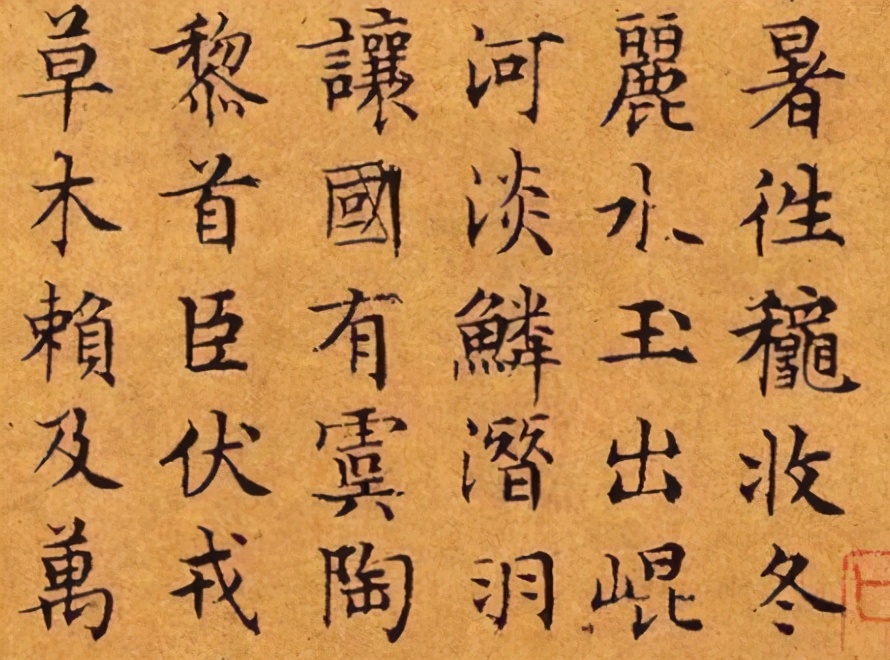 暑徃穐收冬
麗水玉出崐
河淡鱗潛羽
讓國有虞陶
黎首臣伏戎
草木賴及萬